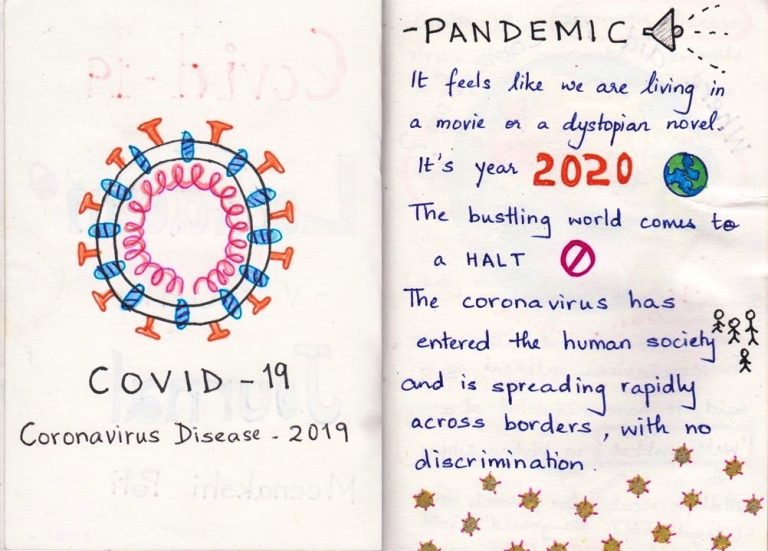 COVID-19
Coronavirus Disease - 2019
-PANDEMIC
It feels like we are living in
a movie or a dystopian novel.
It's year 2020
The bustling world comes to
a HALT
The coronavirus has
entered the human society
and is spreading rapidly
across borders, with no
discrimination.